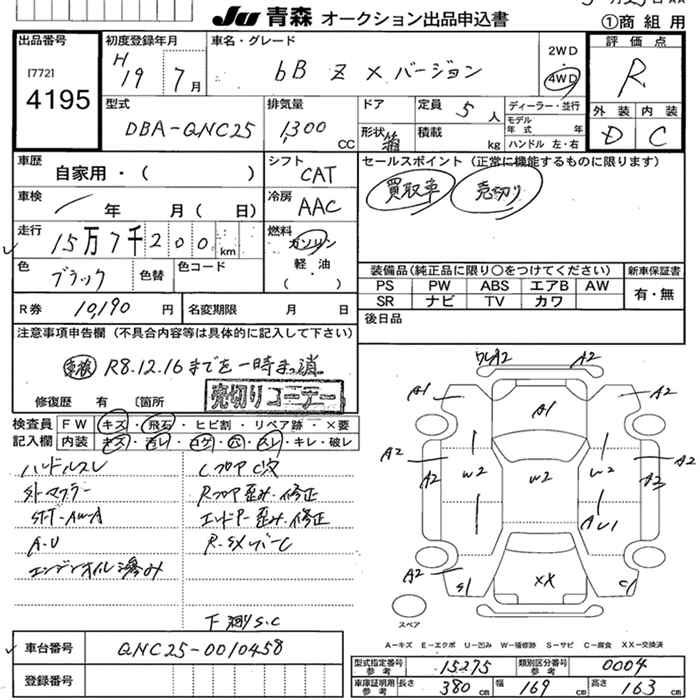 JU 青森 オークション出品申込書
①商組用
出品番号
[772]
4195
初度登録年月
H19 7月
車名・グレード
bB Z Xバージョン
2WD
4WD
評価点
R
外装 内装
D C
型式
DBA-QNC25
排気量
1,300 CC
ドア
形状 箱
定員 5人
積載 kg
ディーラー・並行
モデル年式 年
ハンドル 左・右
車歴
自家用・( )
シフト
CAT
車検
年 月( 日)
冷房
AAC
走行
15万7千200km
燃料
ガソリン
軽・油
( )
色
ブラック
色替
色コード
R券 10,190円
名変期限 月 日
セールスポイント(正常に機能するものに限ります)
買取車 売切り
装備品(純正品に限り○をつけてください)
PS PW ABS エアB AW
SR ナビ TV カワ
新車保証書
有・無
後日品
注意事項申告欄(不具合内容等は具体的に記入して下さい)
車検 R8.12.16までを一時まっ消
修復歴 有 〔箇所
売切りコーナー
検査員記入欄
FW キズ・飛石・ヒビ割・リペア跡・×要
内装 キズ・汚レ・コゲ・穴・スレ・キレ・破レ
ハンドルスレ
外マフラー
社外-AW-A
A-U
エンジンオイル滲み
LフロアC次
Rフロア歪み・修正
エンドP-歪み・修正
R-SメンバーC
下廻S.C
ワレA2
A2
A1
A1
A2
A2
A2
W2
W2
W2
A2
A2
AU1
A2
S1
XX
C1
スペア
A=キズ E=エクボ U=凹み W=補修跡 S=サビ C=腐食 XX=交換済
車台番号 QNC25-0010458
登録番号
型式指定番号 参考 15275
類別区分番号 参考 0004
車庫証明用 参考 長さ 380cm 幅 169cm 高さ 163cm